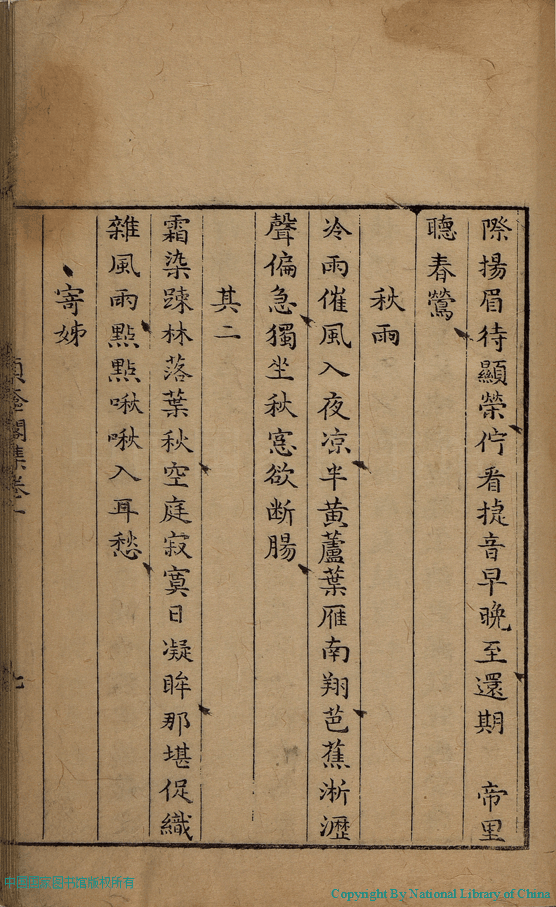 際揚眉待顯榮佇看㨗音早晚至還期　帝里
聽春鶯
秋雨
冷雨催風入夜凉半黃蘆葉雁南翔芭蕉淅瀝
聲偏急獨坐秋窓欲断腸
其二
霜染踈林落葉秋空庭寂寞日凝眸那堪促織
雜風雨點點啾啾入耳愁
寄姊
閣集卷
Copyright By National Library of China